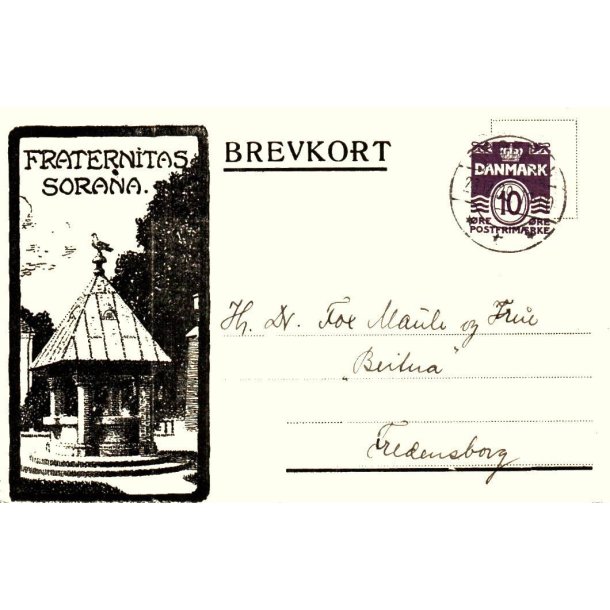 FRATERNITAS
SORANA.
BREVKORT
DANMARK
10
ØRE ØRE
POSTFRIMÆRKE
Hr. Dr. Fox Maule og Frue
"
Fredensborg